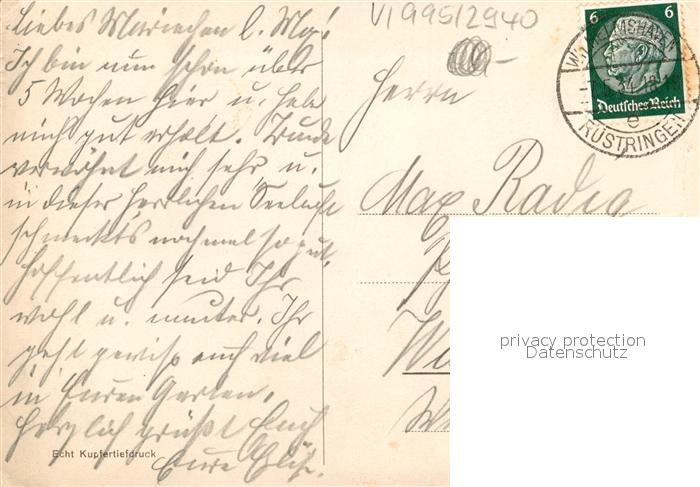 Liebes Mariechen l. Max!
Ich bin nun schon über
5 Wochen hier u. habe
mich gut erholt. Trude
verwöhnt mich sehr, u.
in dieser herrlichen Seeluft
schmeckts nochmal so gut,
hoffentlich seid Ihr
wohl u. munter. Ihr
geht gewiss auch viel
in Euren Garten.
Herzlich grüßt Euch
Eure
Echt Kupfertiefdruck
VI 995/2940
6 6
Deutsches Reich
WILHELMSHAVEN
RÜSTRINGEN
e
Herrn
Max Radig
privacy protection
Datenschutz